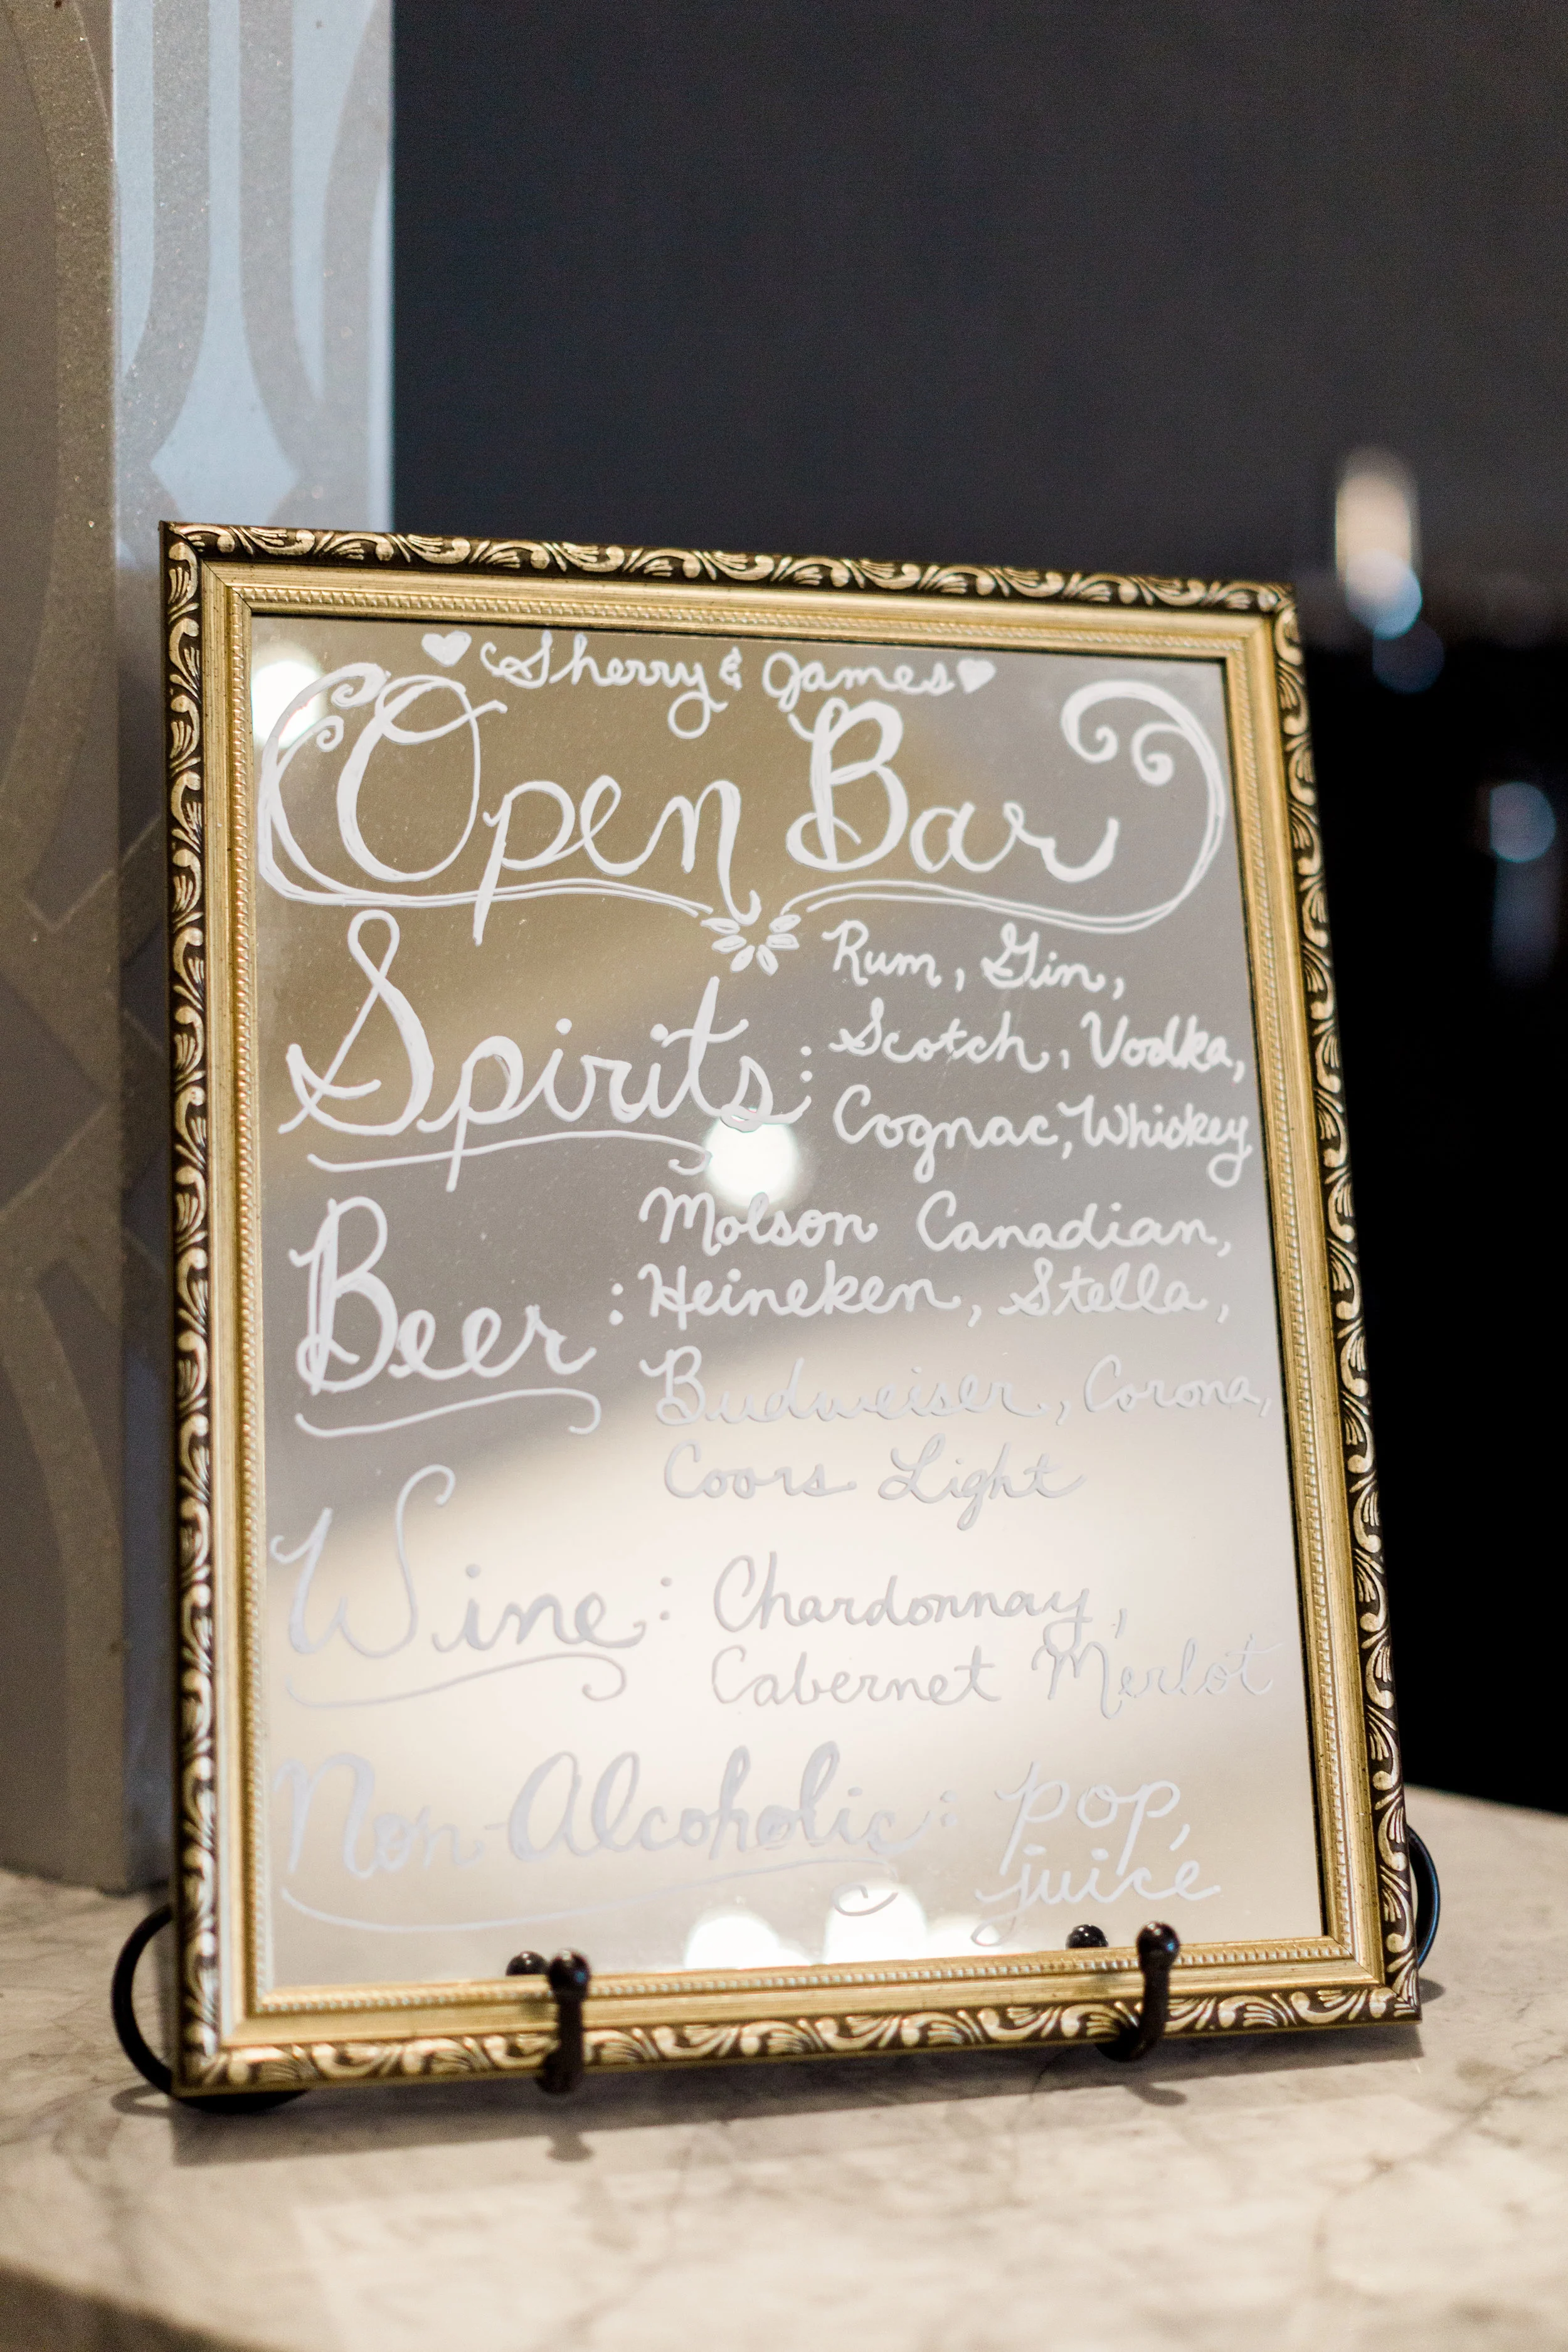 ♥ Sherry & James ♥
Open Bar
Spirits: Rum, Gin,
Scotch, Vodka,
Cognac, Whiskey
Beer: Molson Canadian,
Heineken, Stella,
Budweiser, Corona,
Coors Light
Wine: Chardonnay,
Cabernet Merlot
Non-Alcoholic: pop,
juice